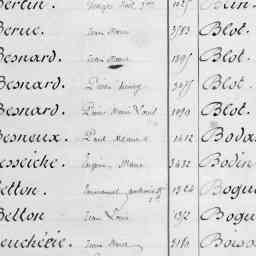 Bertin. 1027 Blin.
Berue. Jean Marie 3783 Blot.
Besnard. Jean Marie 1895 Blot.
Besnard. Pierre 3075 Blot.
Besnard. Pierre Marie Louis 1090 Blot.
Besneux. Paul 1412 Boda
Besseiche. Eugène Marie 3432 Bodin
Betton. Emmanuel 1324 Bogu
Betton Jean Louis 192 Bogu
Beuchétie. Jean Marie 2180 Bois